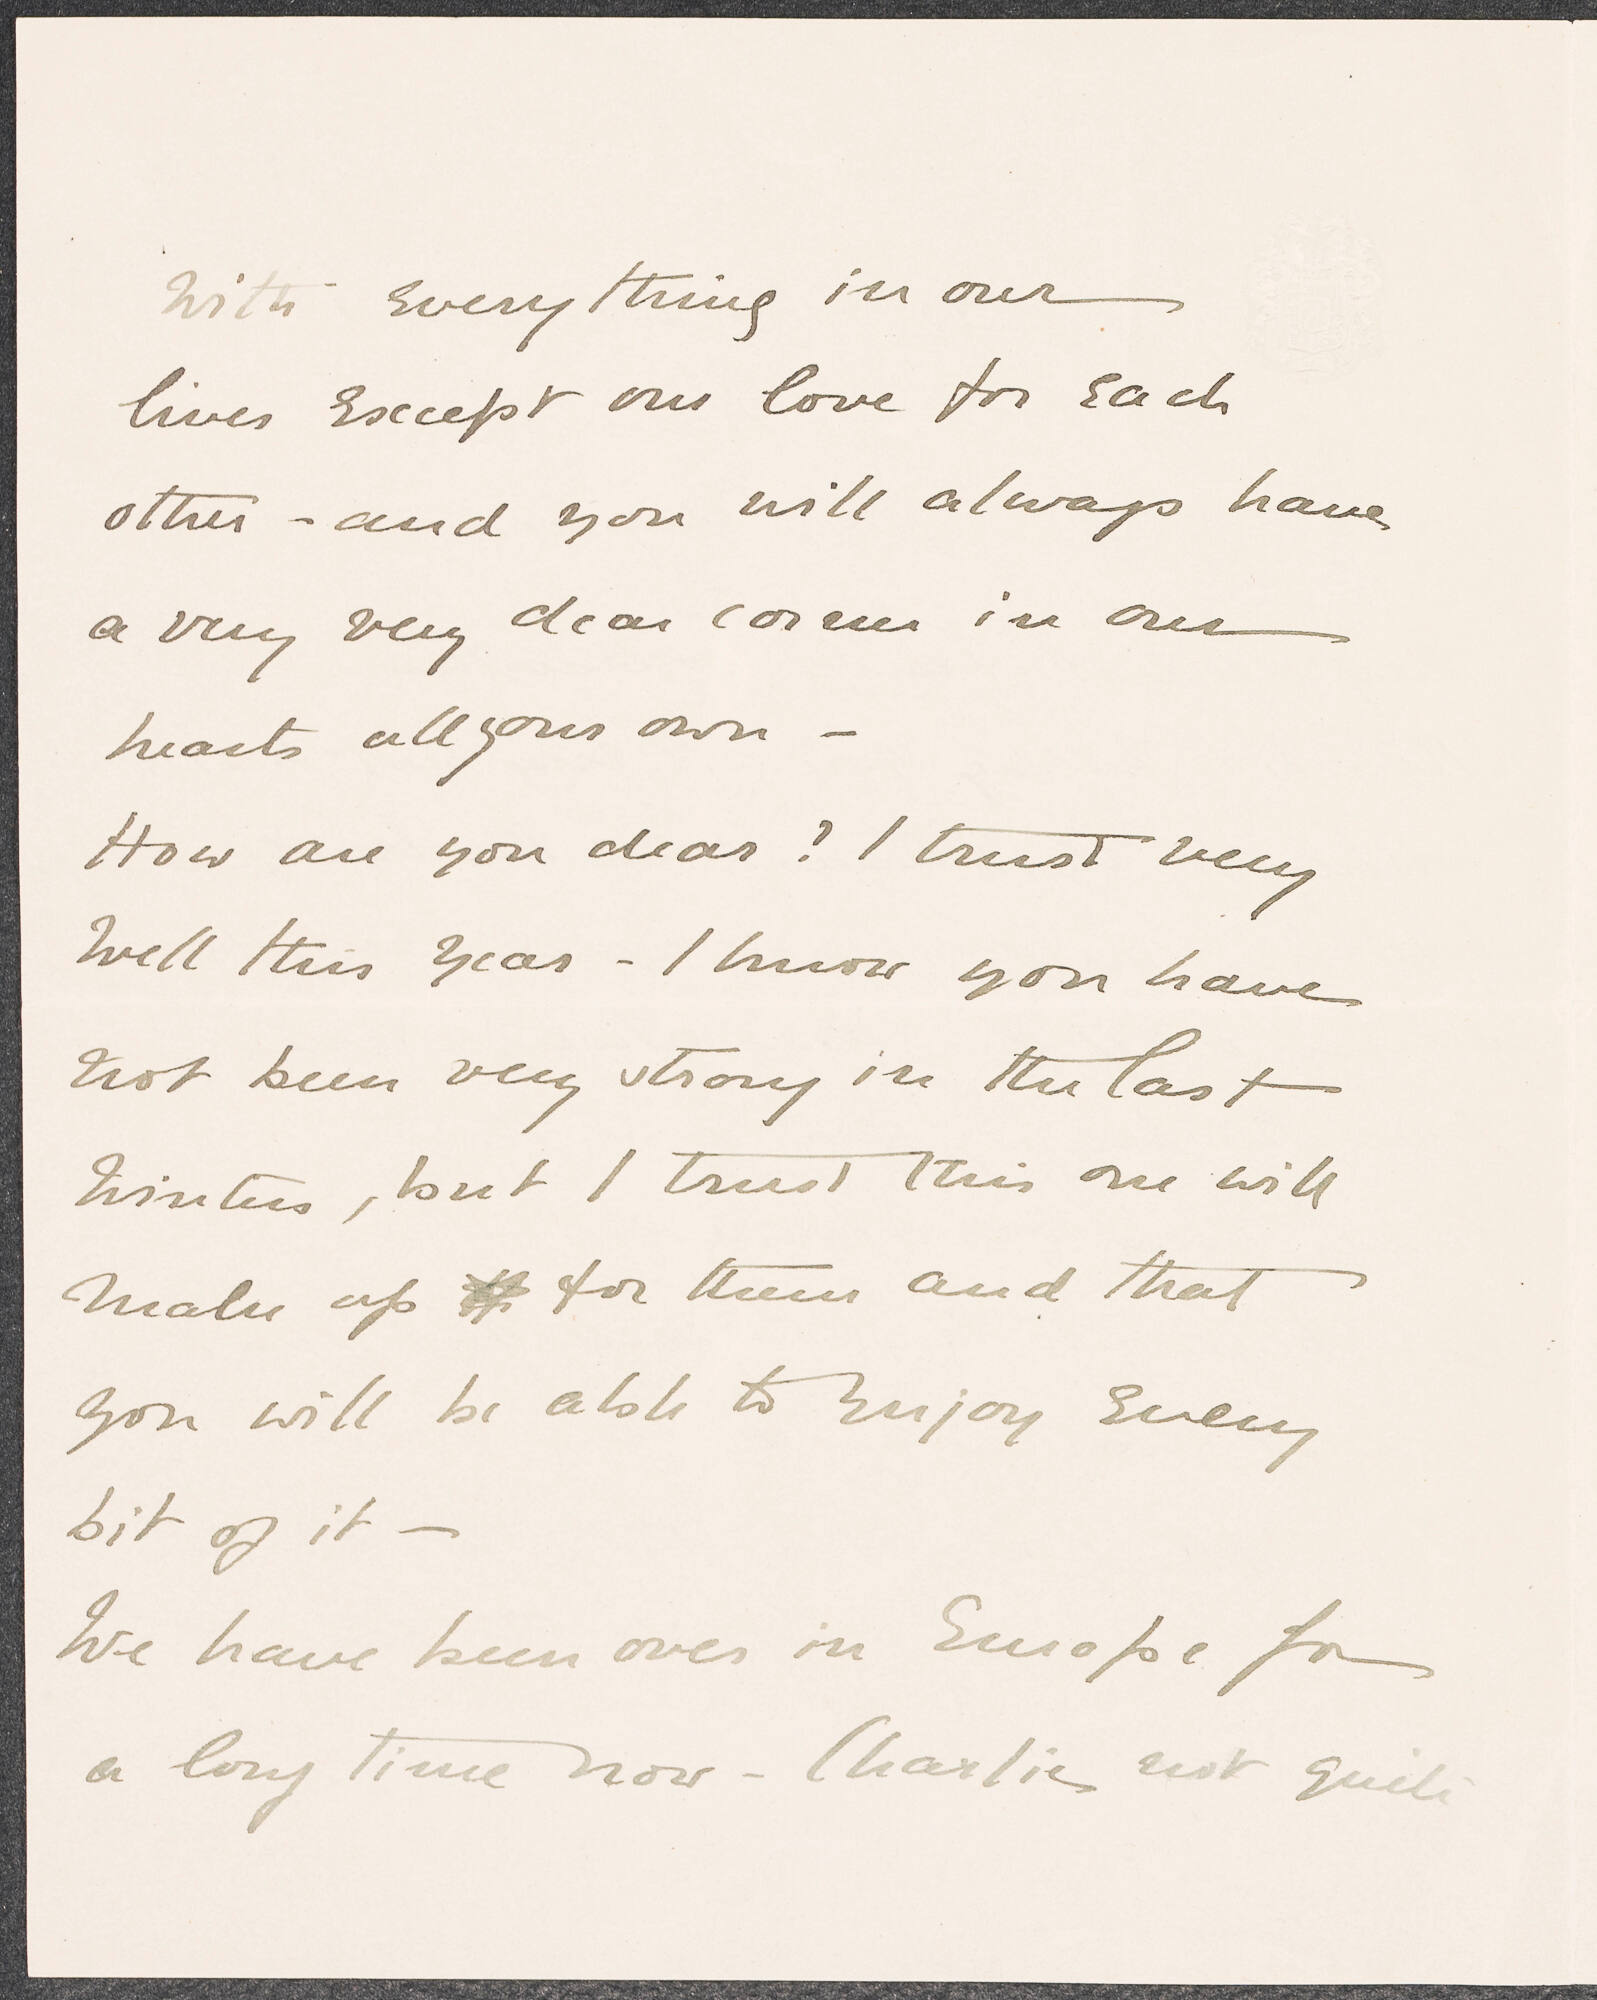 With everything in our
lives except our love for each
other - and you will always have
a very very dear corner in our
hearts all your own -
How are you dear? I trust very
well this year - I know you have
not been very strong in the last
winters, but I trust this one will
make up for them and that
you will be able to enjoy every
bit of it -
We have been over in Europe for
a long time now - Charlie not quite